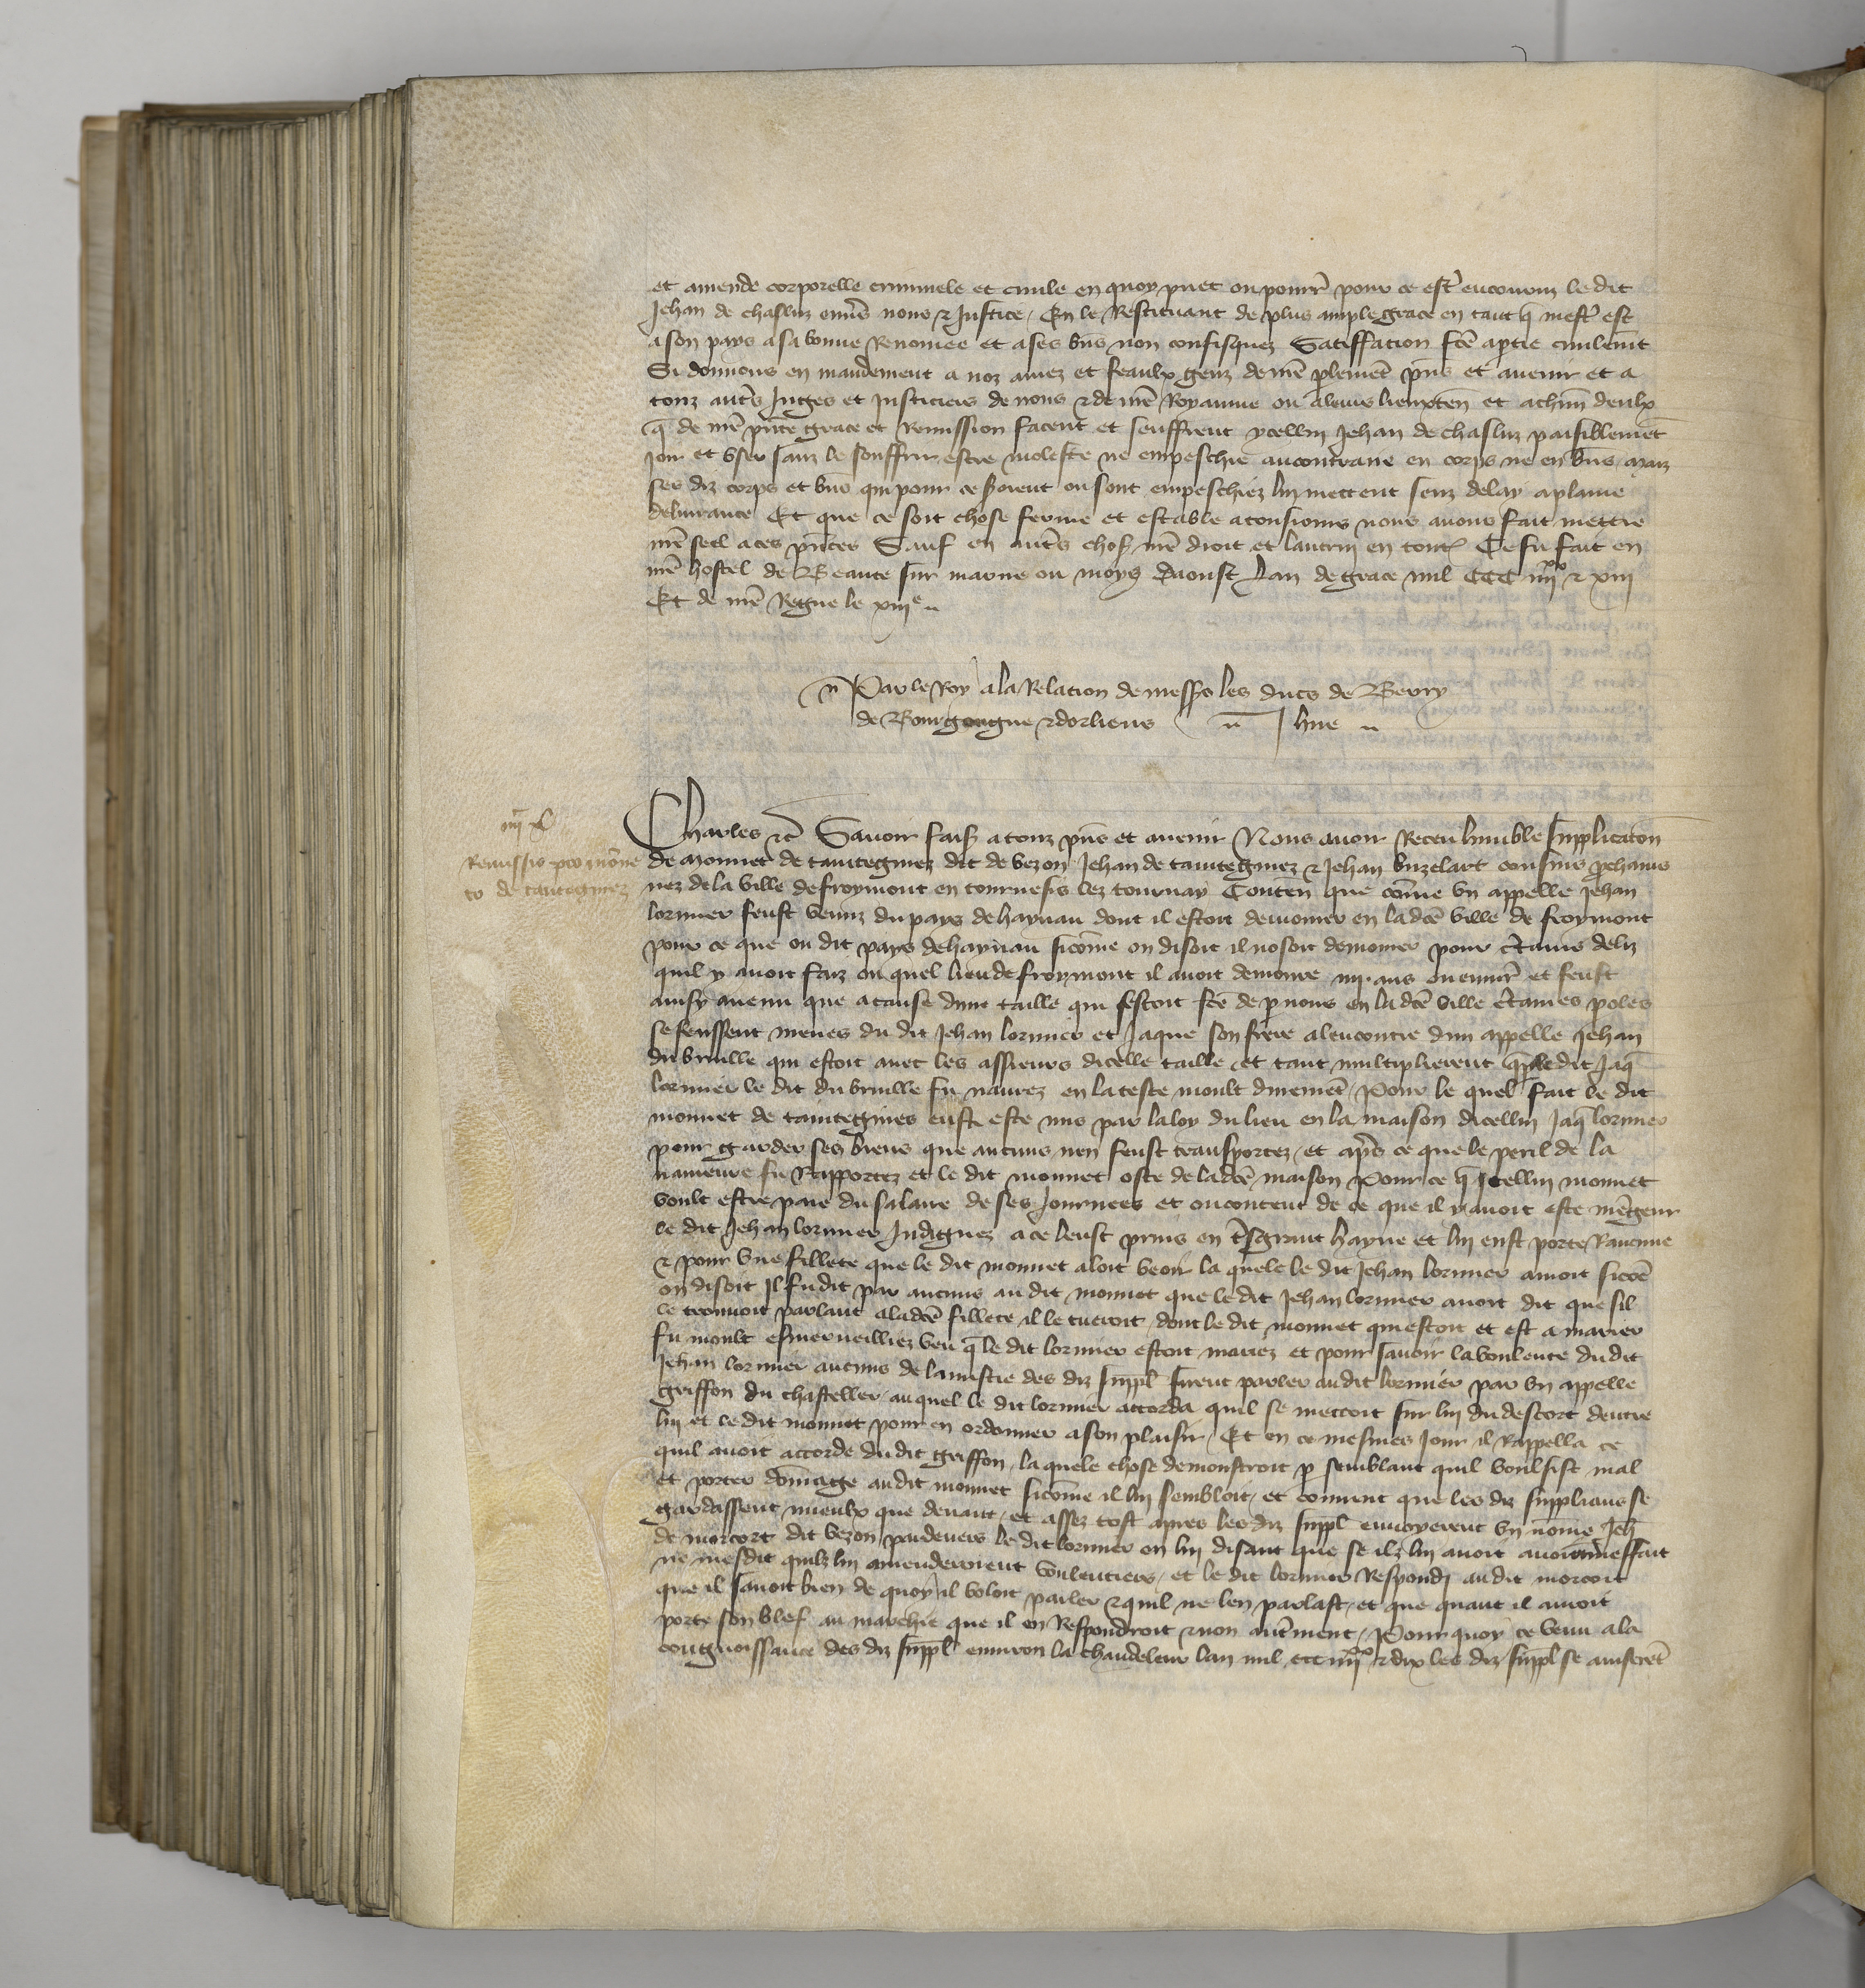 et amende corporelle criminele et civile en quoy puet ou pourr̃ pour ce estr̃ encouruz le dit
Jehan de chasluz envẽs nous ⁊ Justice / En le Restituant de plus ample grace en tant q̃ mestr̃ est
a son pays a sa bonne Renomee et a ses bñs non confisquez Satiffacion fc̃e a ptie civilemt̃
Si donnons en mandement a noz amez et feaulx genz de nr̃e plement̃ pñs et avenir et a
touz autr̃s Juges et Justiciers de nous ⁊ de nr̃e Royaume ou a leurs lieuxteñ et a chũn deulx
q̃ de nr̃e pñte grace et Remission facent et seuffrent ycellui Jehan de chasluz paisiblement̃
joir et user sanz le souffrir estre moleste ne empeschie au contraire en corps ne en bñs maiz
ses diz corps et bñs qui pour ce seroient ou sont empeschiez lui mettent senz delay a plaine
delivrance Et que ce soit chose ferme et estable a tousiours nous avons fait mettre
nr̃e seel a ces pñtes Sauf en autr̃s choses nr̃e droit et lautrui en toutes Ce fu fait en
nr̃e hostel de Beaute sur marne ou moys daoust Lan de grace mil CCC iiij^xx ⁊ xiij
Et de nr̃e Regne le xiij^e
Par le Roy a la Relacion de mess^rs les ducs de Berry
de Bourgongne ⁊ dorliens Jhue
iiij^xx
Remissio pro mone
to de taintegniez
Charles ⁊c̃ Savoir faiz̃ a touz pñs et avenir Nous avoir Receu humble supplicacion
de monnet de taintegniez dit de vezon Jehan de taintegniez ⁊ Jehan buzelart cousins pchains
nez de la ville de froymont en tournesis lez tournay Conteñ que cõme un appelle Jehan
lormier feust venuz du pays de haynau dont il estoit demourer en lad̃ce ville de froymont
pour ce que ou dit pays de haynau sicõme on disoit il nosoit demourer pour c̃tains deliz
quil y avoit faiz ou quel lieu de froymont il avoit demoure iiij ans ou envir̃ et feust
ainsy avenu que a cause dune taille qui sestoit fc̃e de p nous en lad̃ce ville c̃taines poles
se feussent meues du dit Jehan lormier et Jaque son frere a lencontre dun appelle Jehan
du bruille qui estoit avec les asseurs dicelle taille et tant multiplierent q̃ p le dit Jaq̃
lormier le dit du bruille fu navrez en la teste moult durement̃ / Pour le quel fait le dit
monnet de taintegnies eust este mis par la loy du lieu en la maison dicellui Jaq̃ lormier
pour garder ses biens que aucuns nen feust transportez / et apr̃s ce que le peril de la
navreure fu Rapportez et le dit monnet oste de lad̃ce maison Pour ce q̃ Jcellui monnet
voult estre paie du salaire de ses journees et ou content de ce que il y avoit este mẽgeur
le dit Jehan lormier Indignez a ce leust prins en tr̃sgrant hayne et lui eust porte Rancune
⁊ pour une fillete que le dit monnet aloit veoir la quele le dit Jehan lormier amoit sicõe
on disoit Il fu dit par aucuns au dit monnet que le dit Jehan lormier avoit dit que sil
le trouvoit parlant a lad̃ce fillete il le tueroit / dont le dit monnet qui estoit et est a marier
fu moult esmerveilliez veu q̃ le dit lormier estoit mariez et pour savoir la voulente du dit
Jehan lormier aucuns de lamistie des diz suppl̃ firent parler au dit lormier par un appelle
griffon du chasteller / au quel le dit lormier accorda quil se mettoit sur lui du descort dentre
lui et le dit monnet pour en ordonner a son plaisir / Et en ce mesmes jour il Rappella ce
quil avoit accorde du dit griffon / la quele chose demonstroit p semblant quil voulsist mal
et porter dõmage au dit monnet sicõme il lui sembloit / et convint que les diz supplians se
gardassent mieulx que devant / et assez tost apres les diz suppl̃ envoyerent un nõme Jeh̃
de morcort dit vezon pardevers le dit lormier en lui disant que se ilz lui avoit avoient meffait
ne mesdit quilz lui amenderoient voulentiers / et le dit lormier Respondi au dit morcort
que il savoit bien de quoy il voloit parler ⁊ quil ne len parlast / et que quant il avoit
porte son blef au marchie que il en Respondroit ⁊ non autr̃ment / Pour quoy ce venu a la
congnoissance des diz suppl̃ environ la chandeleur lan mil ccc iiij^xx ⁊ dix les diz suppl̃ se aviserẽt